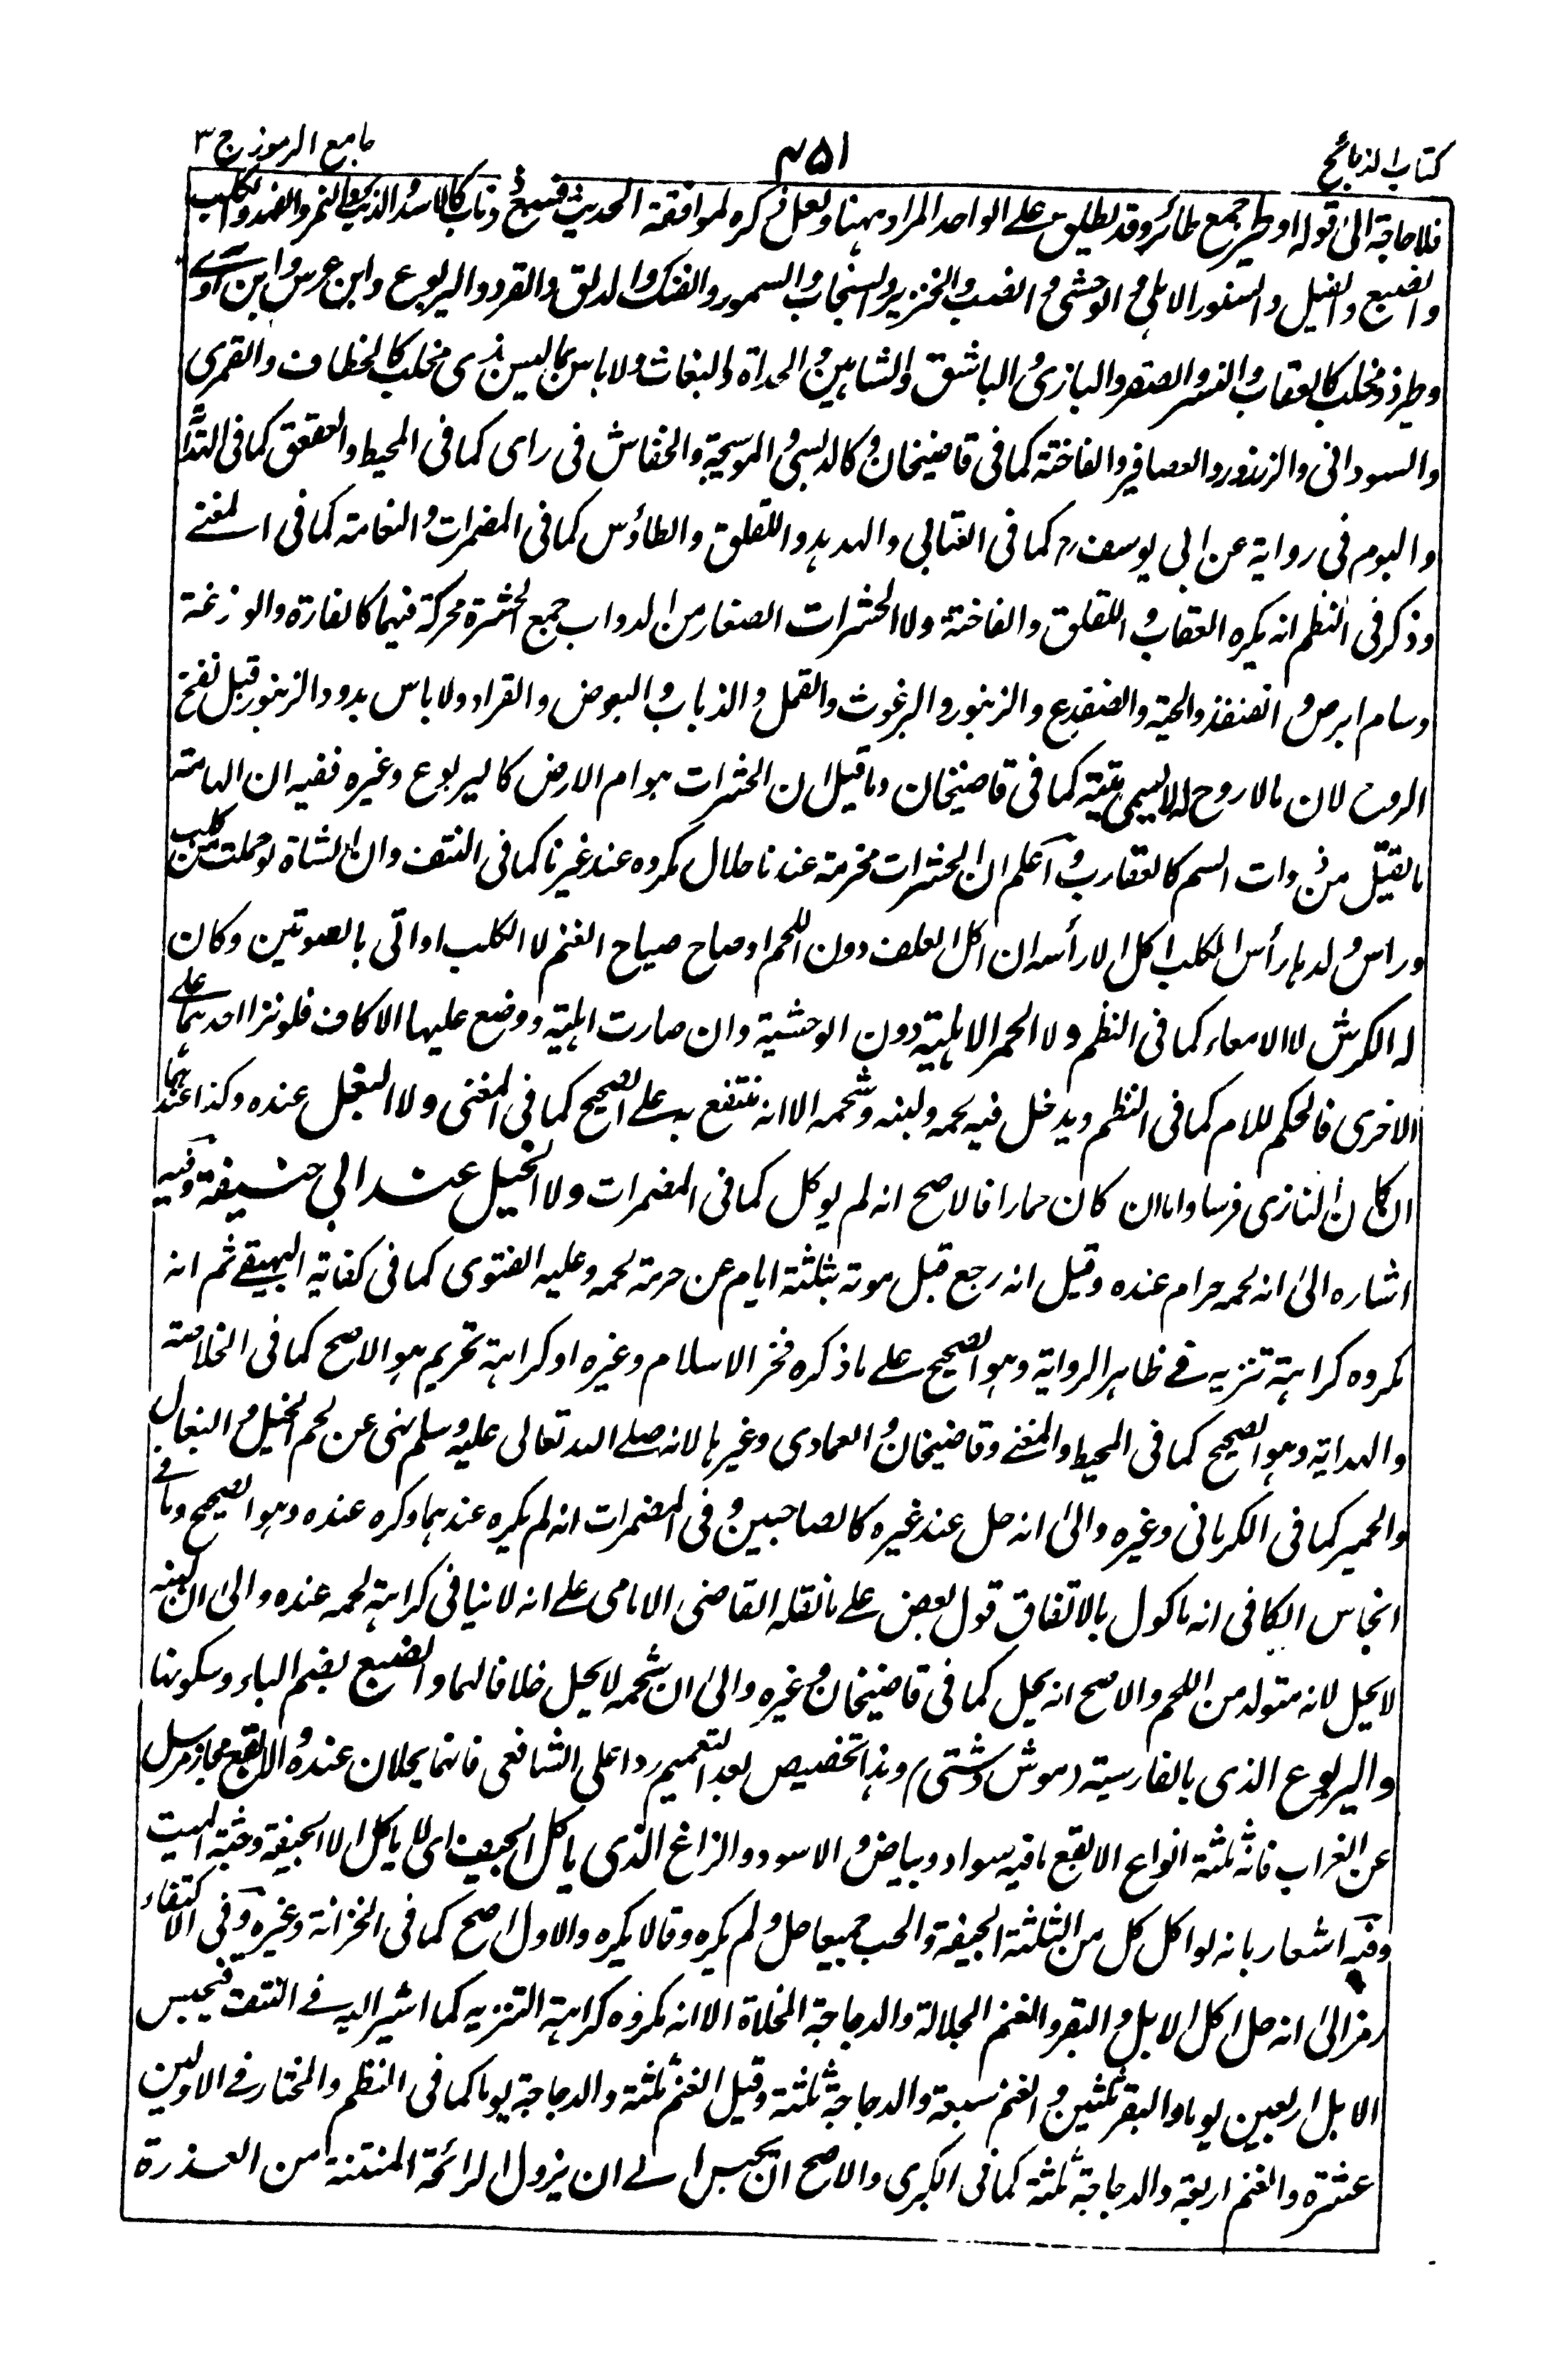 كتاب الذبائح
۴۵۱
جامع الرموز ج ۳
فلا حاجة الىٰ قوله او طير جمع طائر وقد يطلق على الواحد المراد ههنا ولعل ذكره لموافقة الحديث فسبع ذو ناب كالاسد والذئب والنمر والفهد والكلب
والضبع والفيل والسنور الاهلى والوحشى والضب والخنزير والسنجاب والسمور والفنك والدلق والقرد واليربوع وابن عرس وابن آوى
وطير ذو مخلب كالعقاب والنسر والصقر والبازى والباشق والشاهين والحدأة والبغاث ولا باس بما ليس بذى مخلب كالخطاف والقمرى
والسودانى والزرزور والعصافير والفاختة كما فى قاضيخان وكالدبسى والموسيجة والخفاش فى راى كما فى المحيط والعقعق كما فى
والبوم فى رواية عن ابى يوسف رح كما فى العتابى والهدهد واللقلق والطاؤس كما فى المضمرات والنعامة كما فى المغنے
وذكر فى النظم انه يكره العقاب واللقلق والفاختة ولا الحشرات الصغار من الدواب جمع الحشرة محركة فيهما كالفارة والوزغة
وسام ابرص والقنفذ والحية والضفدع والزنبور والبرغوث والقمل والذباب والبعوض والقراد ولا باس بدود الزنبور قبل نفخ
الروح لان ما لا روح له لا يسمى ميتة كما فى قاضيخان وما قيل ان الحشرات هوام الارض كاليربوع وغيره ففيه ان الهامة
ما يقتل من ذوات السم كالعقارب واعلم ان الحشرات محرمة عندنا حلال مكروه عند غيرنا كما فى النتف وان الشاة لو حملت من كلب
وراس ولدها رأس الكلب اكل الا رأسه ان اكل العلف دون اللحم او صاح صياح الغنم لا الكلب او اتى بالصوتين وكان
له الكرش لا الامعاء كما فى النظم ولا الحمر الاهلية دون الوحشية وان صارت اهلية ووضع عليها الاكاف فلو نزا احدهما على
الاخرى فالحكم للام كما فى النظم ويدخل فيه لحمه ولبنه وشحمه الا انه ينتفع به على الصحيح كما فى المغنى ولا البغل عنده وكذا عندهما
ان كان النازى فرسا واما ان كان حمارا فالاصح انه لم يوكل كما فى المضمرات ولا الخيل عند ابى حنيفة وفيه
اشاره الىٰ انه لحمه حرام عنده وقيل انه رجع قبل موته بثلثة ايام عن حرمة لحمه وعليه الفتوى كما فى كفاية البيهقے ثم انه
مكروه كراهة تنزيه فے ظاهر الرواية وهو الصحيح على ما ذكره فخر الاسلام وغيره او كراهة تحريم هو الاصح كما فى الخلاصة
والهداية وهو الصحيح كما فى المحيط والمغنے وقاضيخان والعمادى وغيرها لانه صلى الله تعالى عليه وسلم نهى عن لحم الخيل والبغال
والحمير كما فى الكرمانى وغيره والىٰ انه حل عند غيره كالصاحبين وفى المضمرات انه لم يكره عندهما وكره عنده وهو الصحيح وما فے
انجاس الكافى انه ماكول بالاتفاق قول بعض على ما نقله القاضى الامامى على انه لا ينافى كراهة لحمه عنده والىٰ ان لبنه
لا يحل لانه متولد من اللحم والاصح انه يحل كما فى قاضيخان وغيره والىٰ ان شحمه لا يحل خلافا لهما والضبع بضم الباء وسكونها
واليربوع الذى بالفارسية (موش دشتى) وهذا تخصيص بعد التعميم ردا على الشافعى فانهما يحلان عنده والابقع مجاز مرسل
عن الغراب فانه ثلثة انواع الابقع ما فيه سواد وبياض والاسود والزاغ الذى ياكل الجيف اى لا ياكل الا الجيفة وجثة الميت
وفيه اشعار بانه لو اكل كل من الثلثة الجيفة والحب جميعا حل ولم يكره وقالا يكره والاول اصح كما فى الخزانة وغيره وفى الاكتفاء
رمز الىٰ انه حل اكل الابل والبقر والغنم الجلالة والدجاجة المخلاة الا انه مكروه كراهة التنزيه كما اشير اليه فے النتف فيحبس
الابل اربعين يوما والبقر ثلثين والغنم سبعة والدجاجة ثلثة وقيل الغنم ثلثة والدجاجة يوما كما فى النظم والمختار فے الاولين
عشرة والغنم اربعة والدجاجة ثلثة كما فى الكبرى والاصح ان يحبس الے ان يزول الرائحة المنتنة من العذرة